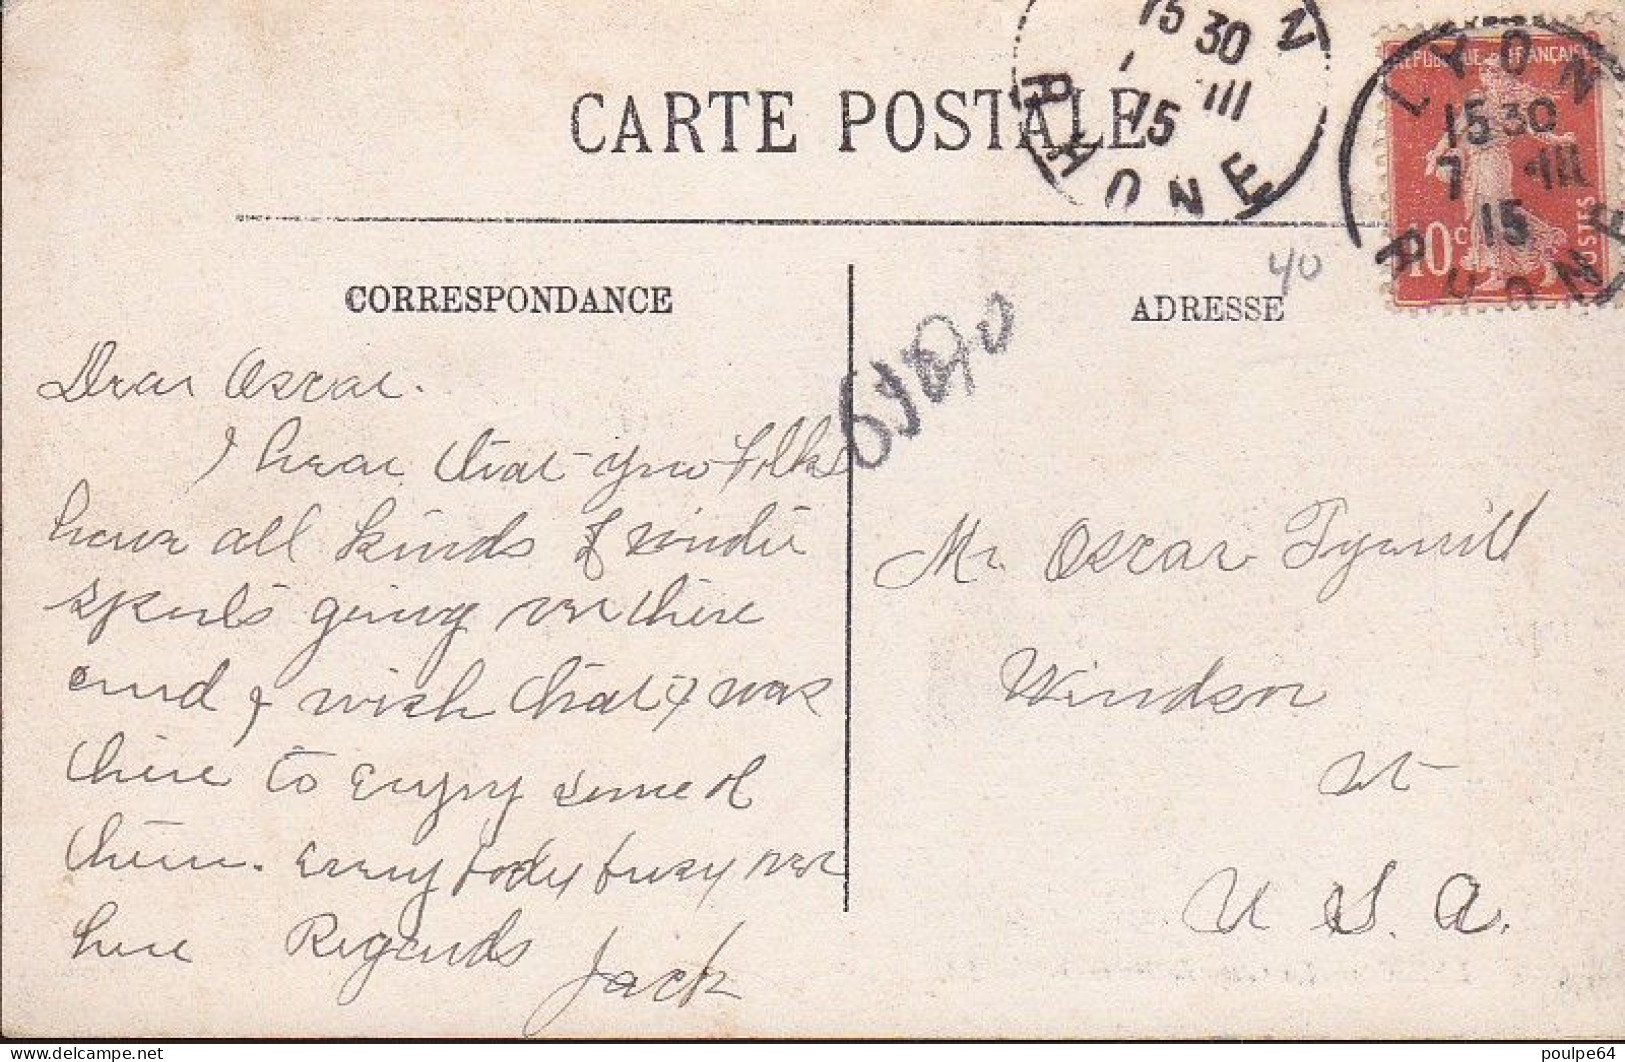 CARTE POSTALE
15 30
III
15
RHONE
REPUBLIQUE FRANÇAISE
10c
POSTES
LYON
15 30
7 III
15
RHONE
40
CORRESPONDANCE
ADRESSE
Dear Oscar.
I hear that you folks
have all kinds of winter
sports going on there
and I wish that I was
there to enjoy some of
them. Every body busy over
here Regards
Jack
Mr. Oscar
Windsor
U. S. A.
delcampe.net
poulpe64